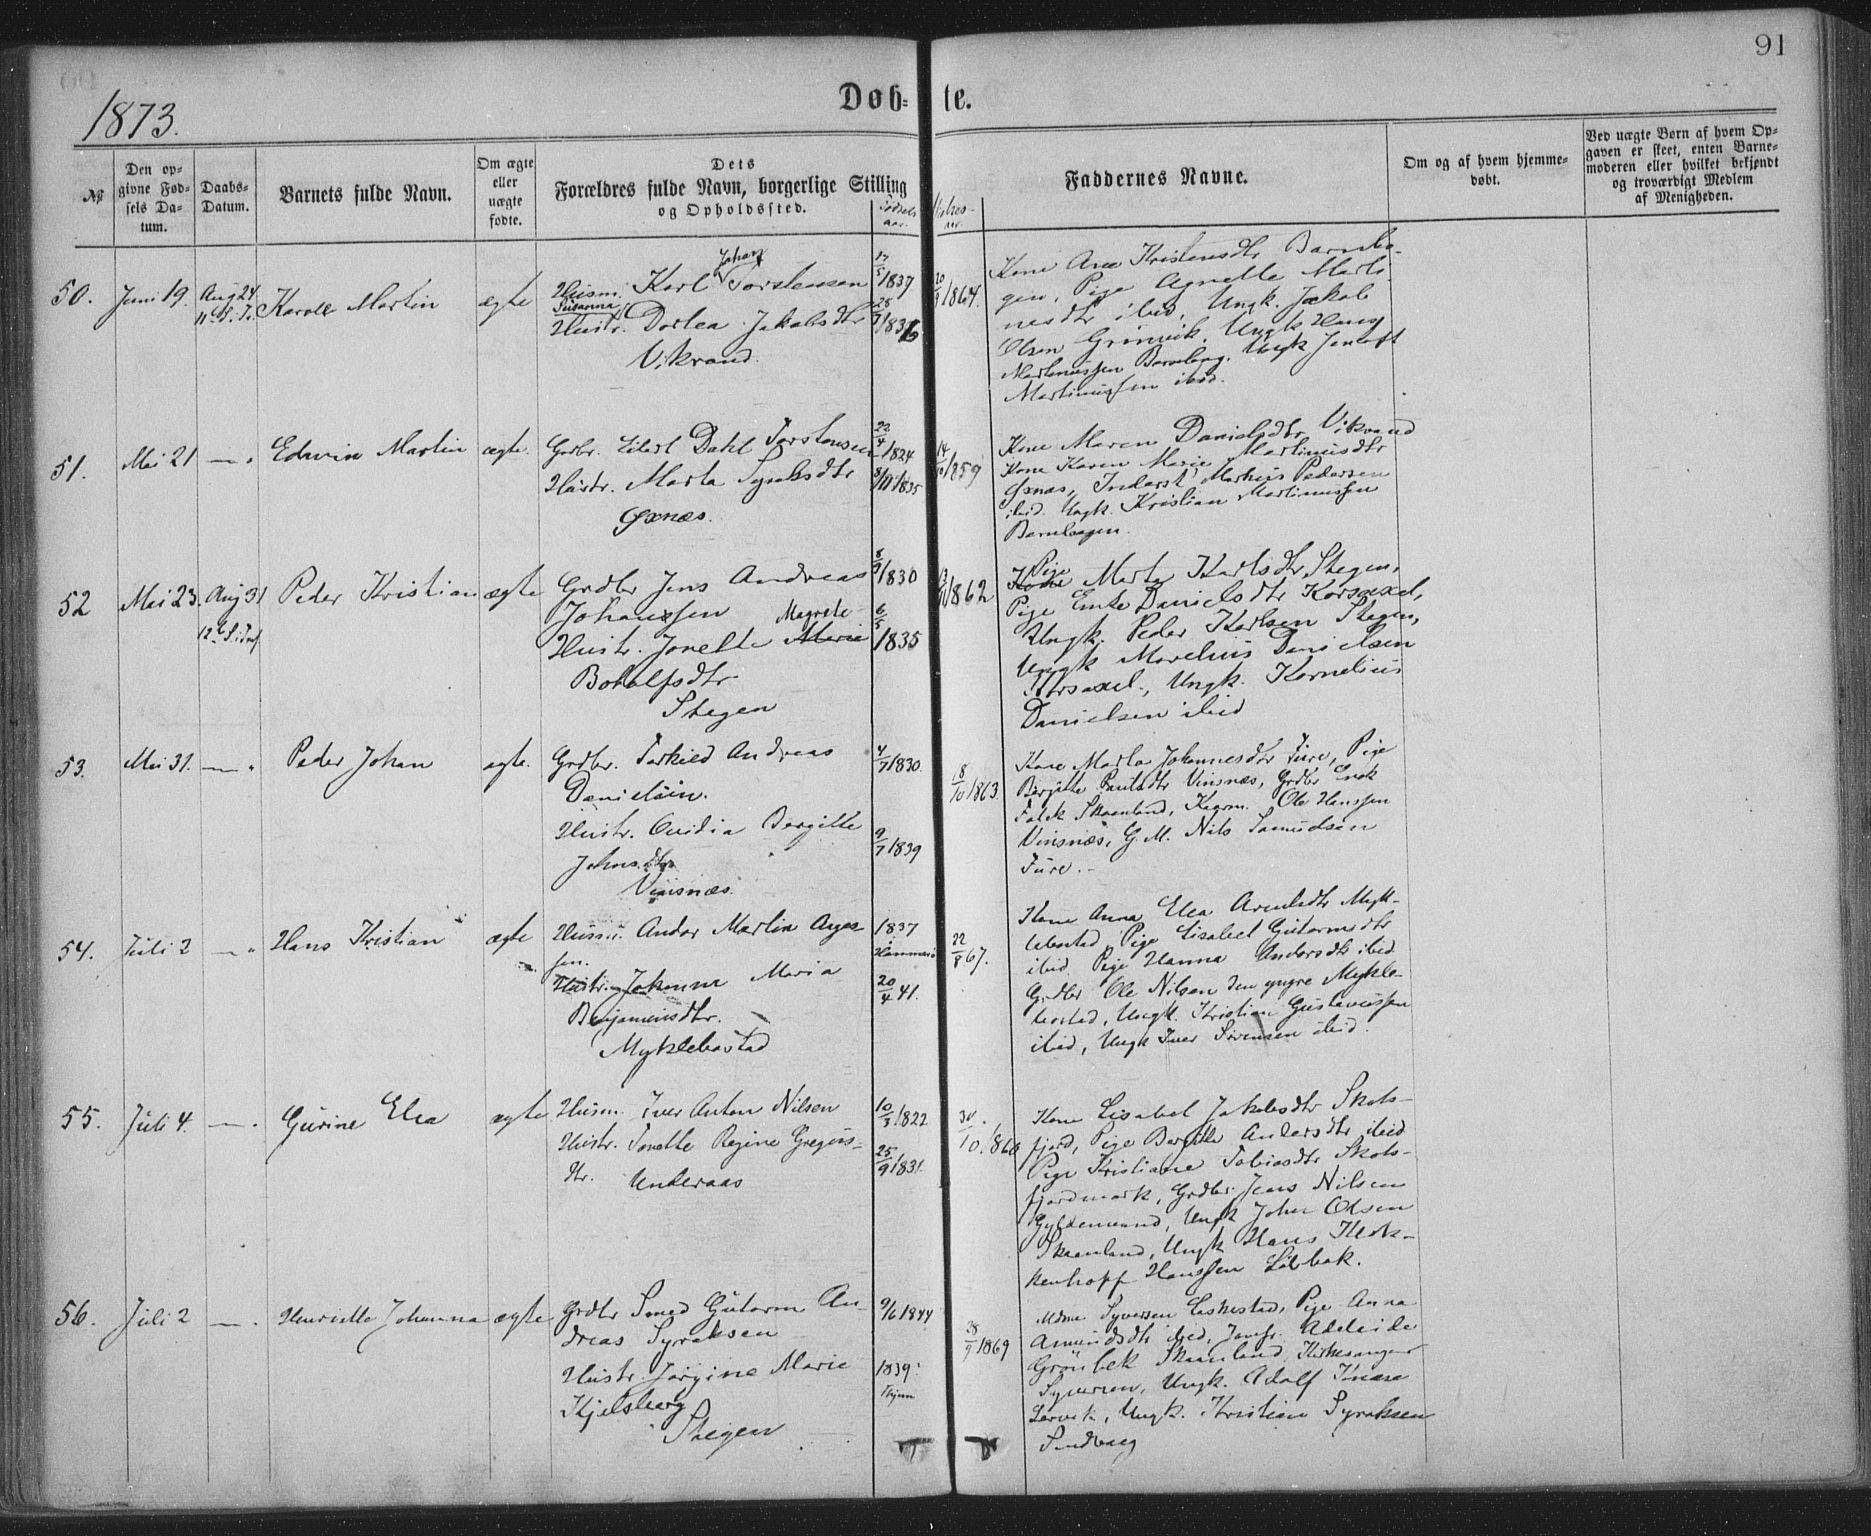 91
1873.
Døb-te.
№
Den op-
givne Fød-
sels Da-
tum.
Daabs-
Datum.
Barnets fulde Navn.
Om ægte
eller
uægte
fødte.
Dets
Forældres fulde Navn, borgerlige Stilling
og Opholdssted.
Fødsels
aar.
Vielses-
aar.
Faddernes Navne.
Om og af hvem hjemme-
døbt.
Ved uægte Børn af hvem Op-
gaven er skeet, enten Barne-
moderen eller hvilket bekjendt
og troværdigt Medlem
af Menigheden.
50. Juni 19. Aug 24 Martin ægte
Husm. Karl Johan Torstensen /1837
Susanna
Hustr. Dortea Jakobsdtr
Vikvand.
/1864.
Kone Ane Kristensdtr Barnha-
gen, Pige Agnette Marti-
nesdtr ibid, Ungk. Jakob
Olsen Grönvik, Ungk Hans
Martinussen Barnhag. Ungk Jentoft
Martinussen ibid.
51. Mai 21 — " Edvin Martin ægte.
Grdbr. Eilert Dahl Torstensen 22/4 1824
Hustr. Marta Syraksdtr 8/11 1835
Øxnæs.
14/10 1859
Kone Maren Danielsdtr Vikvand
Kone Karen Marie Martinusdtr
Øxnæs, Inderst Markus Pedersen
ibid. Ungk. Kristian Martinussen
Barnhagen.
52 Mai 23. Aug 31 Peder Kristian ægte
Grdbr Jens Andreas /1830
Johanssen
Hustr. Jonette Marie Magrete 6/5 1835
Botolfsdtr
Stegen
/1862
Kone Pige Marta Karlsdtr Stegen,
Pige Emke Danielsdtr Korsaxel,
Ungk. Peder Karlsen Stegen,
Ungk Marelius Danielsen
Korsaxel, Ungk. Kornelius
Danielsen ibid
53. Mai 31. — " Peder Johan ægte.
Grdbr. Torkild Andreas 4/7 1830.
Danielsen.
Hustr. Ovidia Bergitte 9/7 1839
Johnsdtr
Vinsnæs.
18/10 1863.
Kone Marta Johannesdtr Fure, Pige
Bergitte Paulsdtr Vinsnæs, Grdbr Enok
Falck Skaanland, Kagm. Ole Hanssen
Vinsnæs, G. M. Nils Samuelsen
Fure.-
54. Juli 2 — " Hans Kristian ægte
Husm. Andor Martin Aages- 1837
sen. Hammerö
Hustr. Johanne Maria 20/4 41.
Benjaminsdtr.
Myklebostad
22/8 67.
Kone Anna Elea Arentsdtr Myk-
lebostad Pige Lisabet Gutormsdtr
ibid. Pige Hanna Andersdtr ibid
Grdbr Ole Nilsen den yngre Mykle-
bostad, Ungk. Kristian Gustavussen
ibid, Ungk Iver Sörensen ibid.
55. Juli 4. — . Gurine Elea ægte
Husm. Iver Anton Nilsen 10/3 1822
Hustr. Tonette Regine Gregus- 25/9 1831.
dtr. Underaas
30/10. 1860
Kone Lisabet Jakobsdtr Skots-
fjord, Pige Bergitte Andersdtr ibid
Pige Kristiane Tobiasdtr Skots-
fjordmark, Grdbr. Jens Nilsen
Gyldenvand, Ungk Johan Olsen
Skaanland, Ungk Hans Klok-
kenhoff Hanssen Lilbak.
56. Juli 2 — . Henriette Johanna ægte
Grdbr Smed Gutorm An- 9/6 1844
dreas Syraksen
Hustr. Jörgine Marie 1839.
Kjelsberg
Stegen
28/9 1869
Mdme Syversen Laskestad, Pige Anna
Amundsdtr ibid, Jomfr. Adelaide
Grönbek Skaanland, Kirkesanger
Syversen, Ungk. Adolf
Lervik, Ungk. Kristian Syraksen
Sandvaag